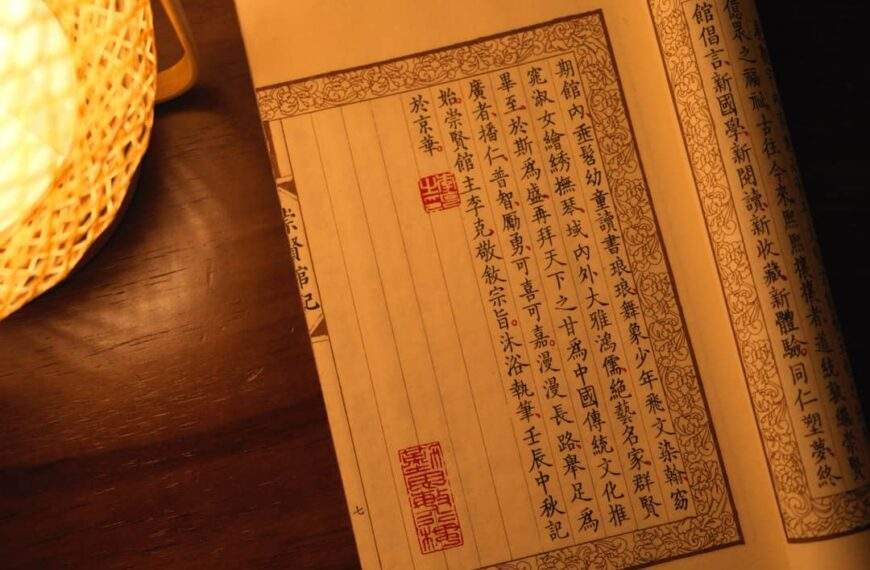 億眾之
古往今來熙熙攘攘者道統
館倡言、新國學、新閱讀、新收藏、新體驗、同仁塑夢、終
期館內、垂髫幼童、讀書琅琅、舞象少年、飛文染翰、窈
窕淑女、繪綉撫琴、域內外大雅鴻儒、絕藝名家、群賢
畢至、於斯爲盛。再拜天下之甘爲中國傳統文化推
廣者、播仁、普智、勵勇、可喜可嘉。漫漫長路、舉足爲
始。崇賢館主李克敬敘宗旨。沐浴執筆。壬辰中秋記
於京華。
崇賢館記
七